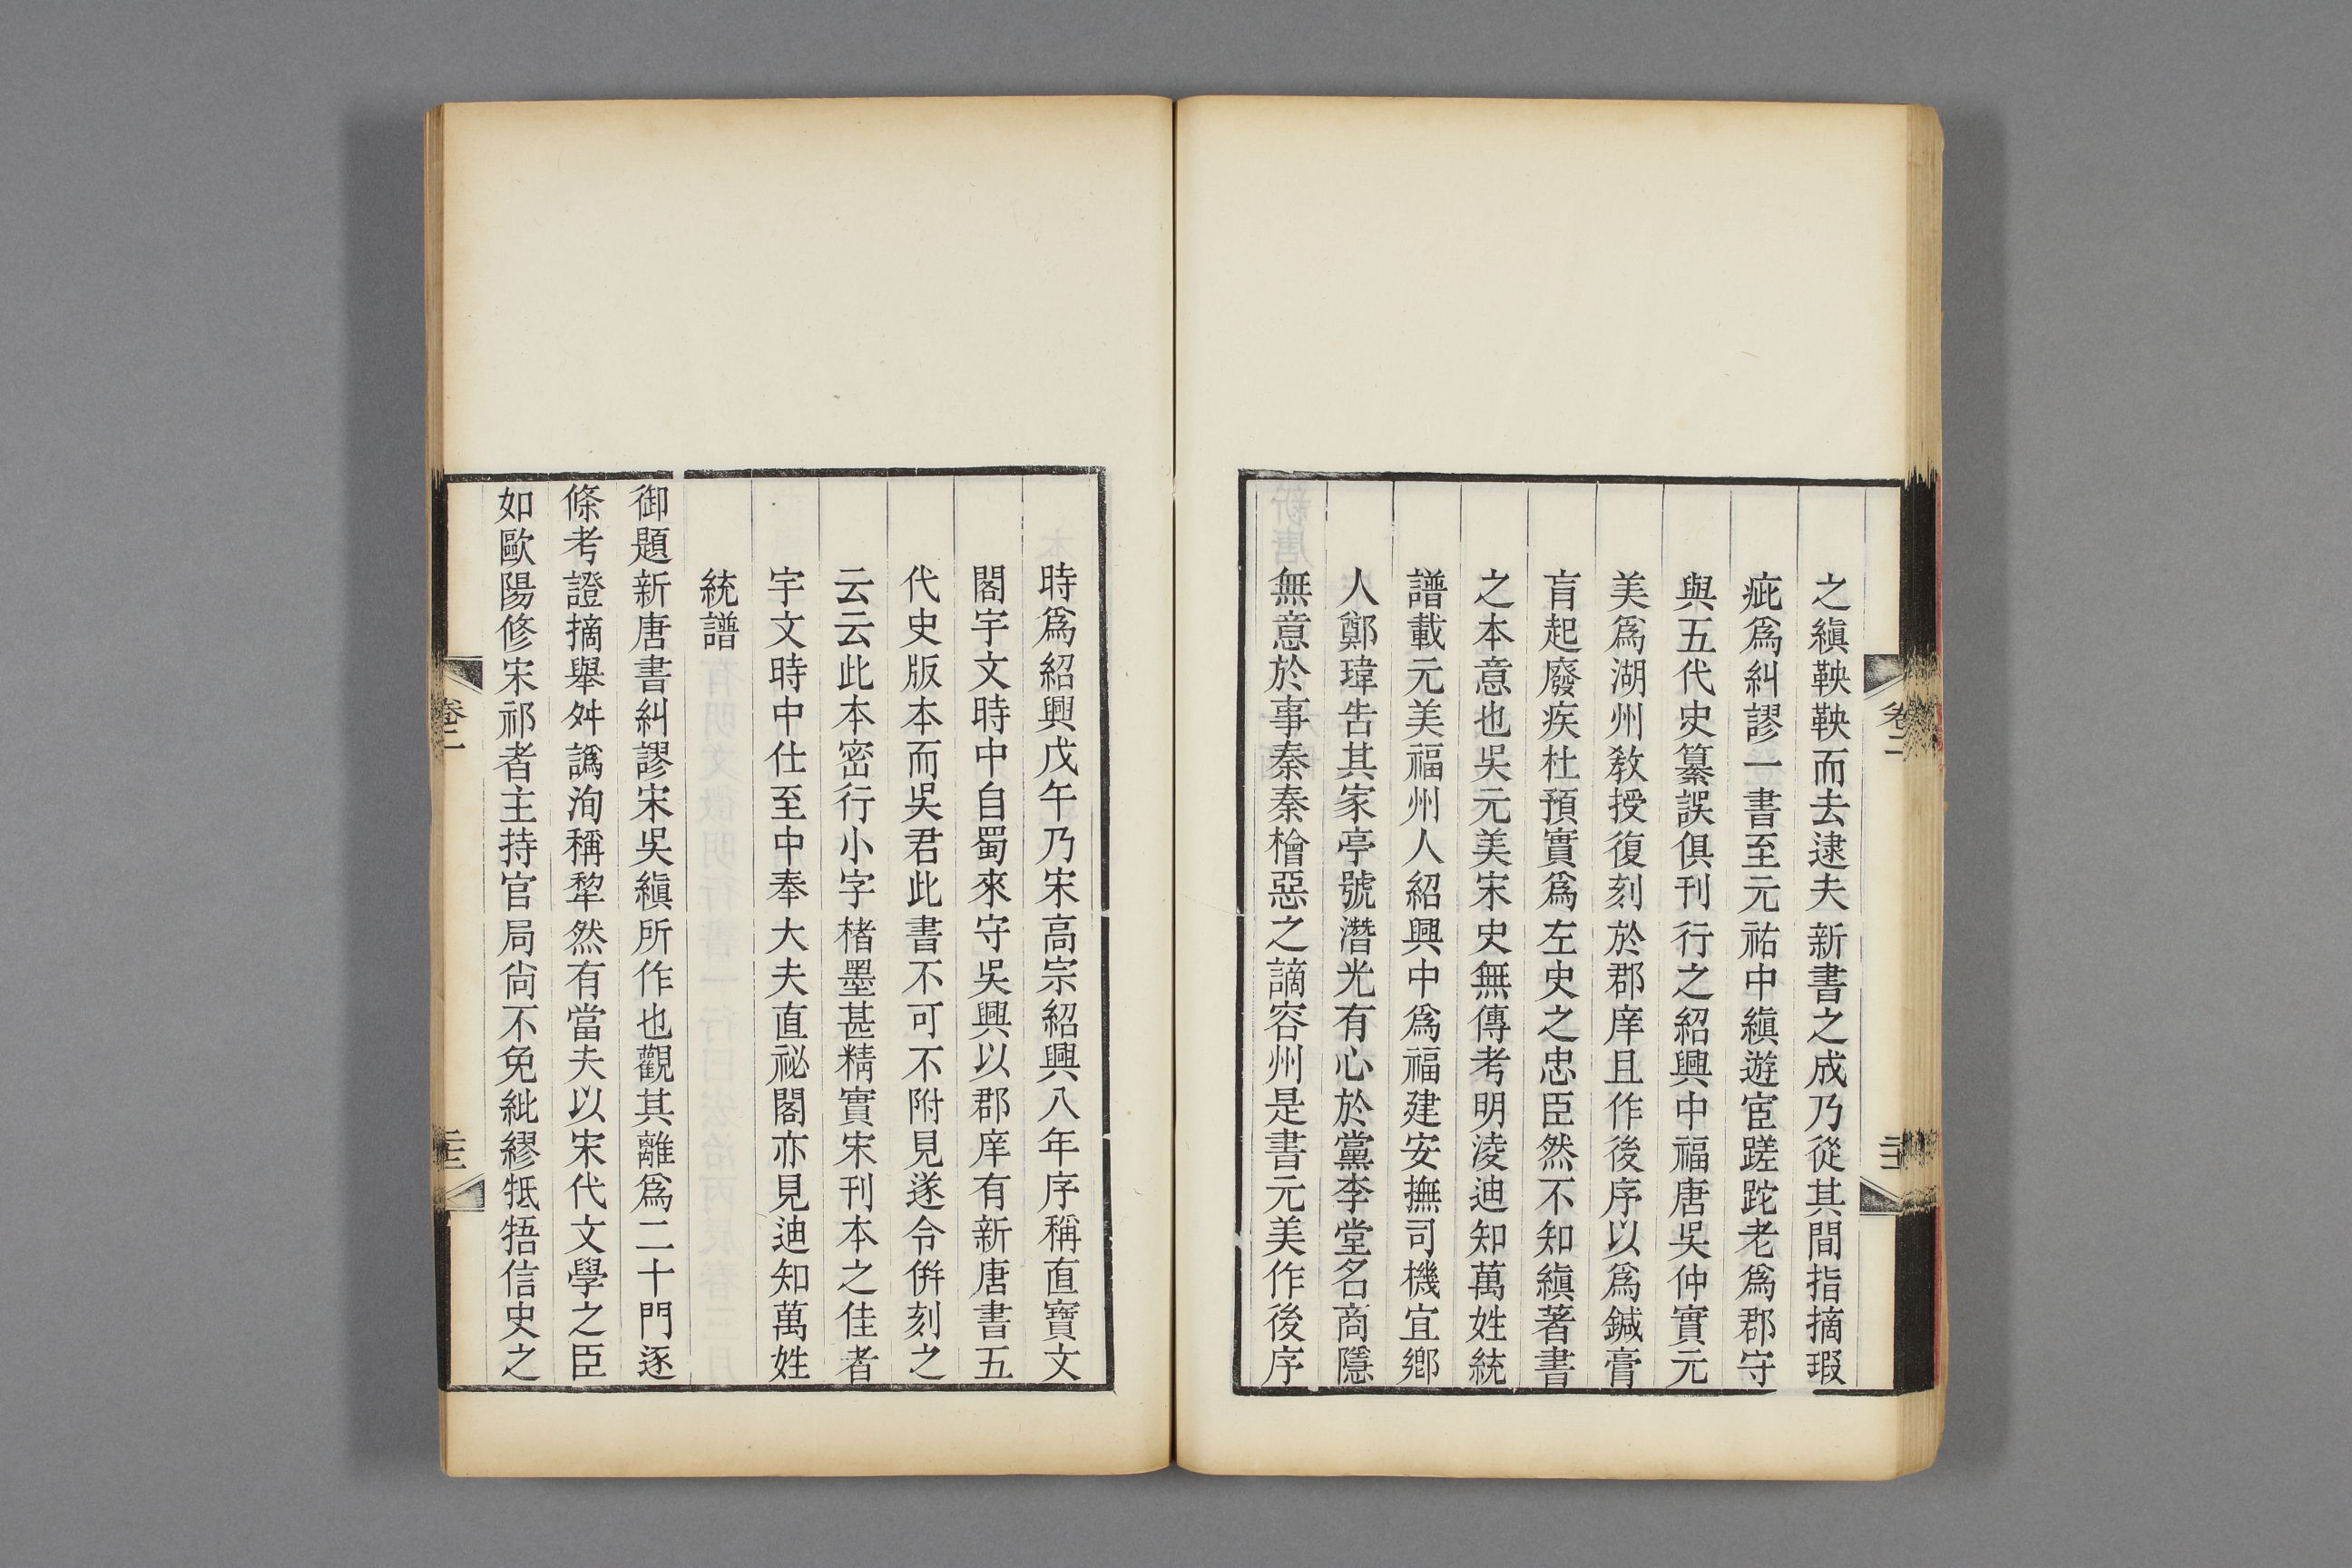 之縝鞅鞅而去逮夫新書之成乃從其間指摘瑕
疵爲糾謬一書至元祐中縝遊宦蹉跎老爲郡守
與五代史纂誤俱刊行之紹興中福唐吳仲實元
美爲湖州敎授復刻於郡庠且作後序以爲鍼膏
肓起廢疾杜預實爲左史之忠臣然不知縝著書
之本意也吳元美宋史無傳考明淩迪知萬姓統
譜載元美福州人紹興中爲福建安撫司機宜鄉
人鄭瑋告其家亭號潛光有心於黨李堂名商隱
無意於事秦秦檜惡之謫容州是書元美作後序
時爲紹興戊午乃宋高宗紹興八年序稱直寶文
閣宇文時中自蜀來守吳興以郡庠有新唐書五
代史版本而吳君此書不可不附見遂令倂刻之
云云此本密行小字楮墨甚精實宋刊本之佳者
宇文時中仕至中奉大夫直祕閣亦見迪知萬姓
統譜
御題新唐書糾謬宋吳縝所作也觀其離爲二十門逐
條考證摘舉舛譌洵稱犂然有當夫以宋代文學之臣
如歐陽修宋祁者主持官局尙不免紕繆牴牾信史之
卷二